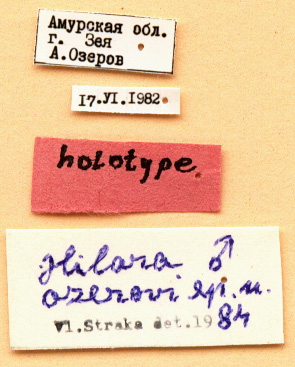 Амурская обл.
г. Зея
А.Озеров
17.VI.1982.
holotype
Hilara ♂
ozerovi sp. n.
Vl.Straka det.19 84